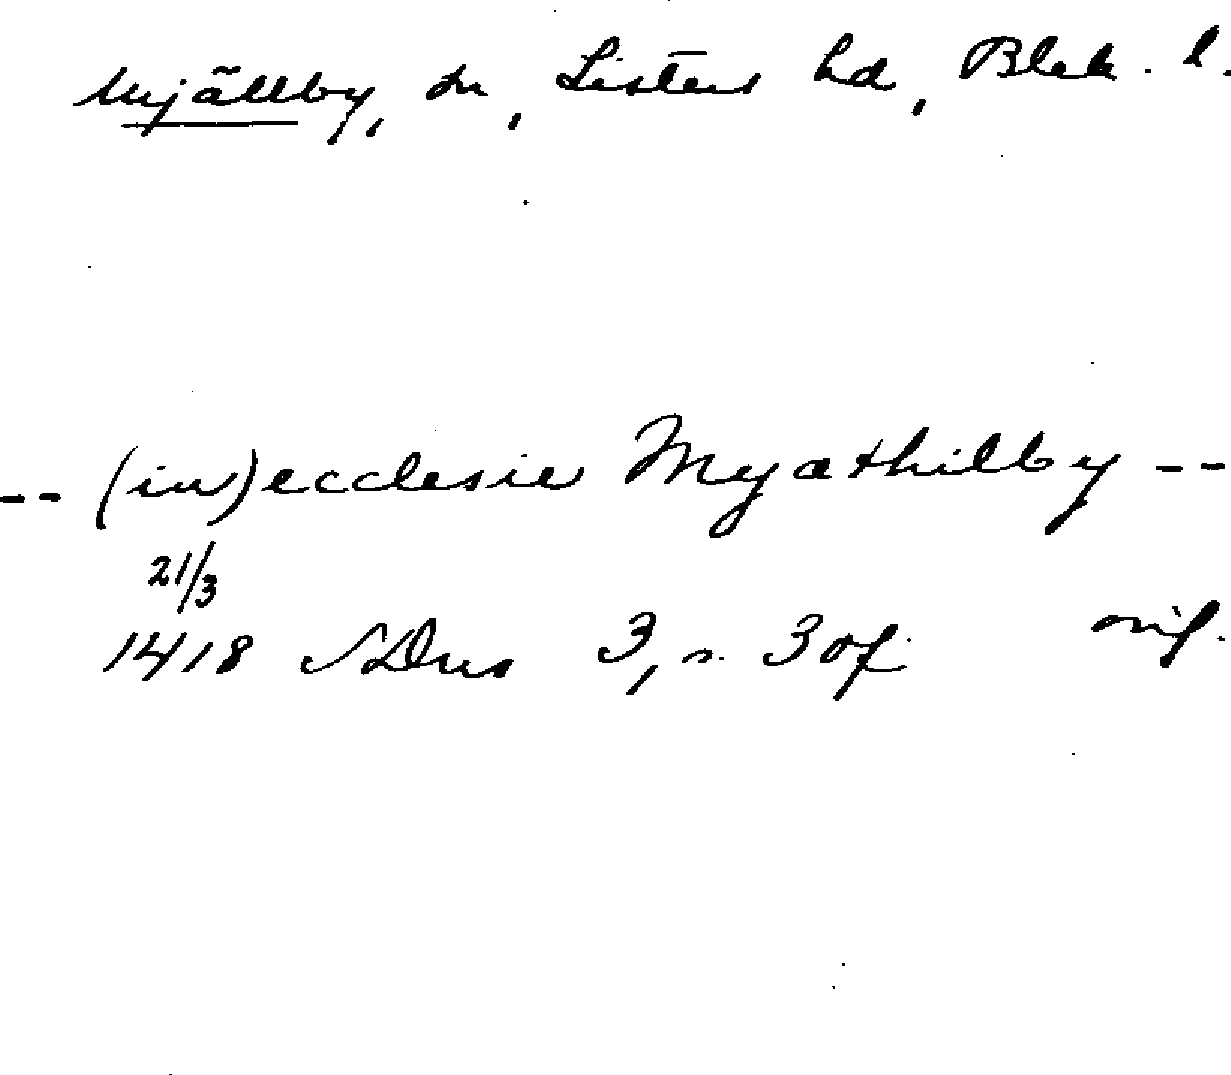 Mjällby, sn, Listers hd, Blek. l.
-- (in) ecclesie Myathilby --
21/3
1418 SDns 3, s. 30f. orig.